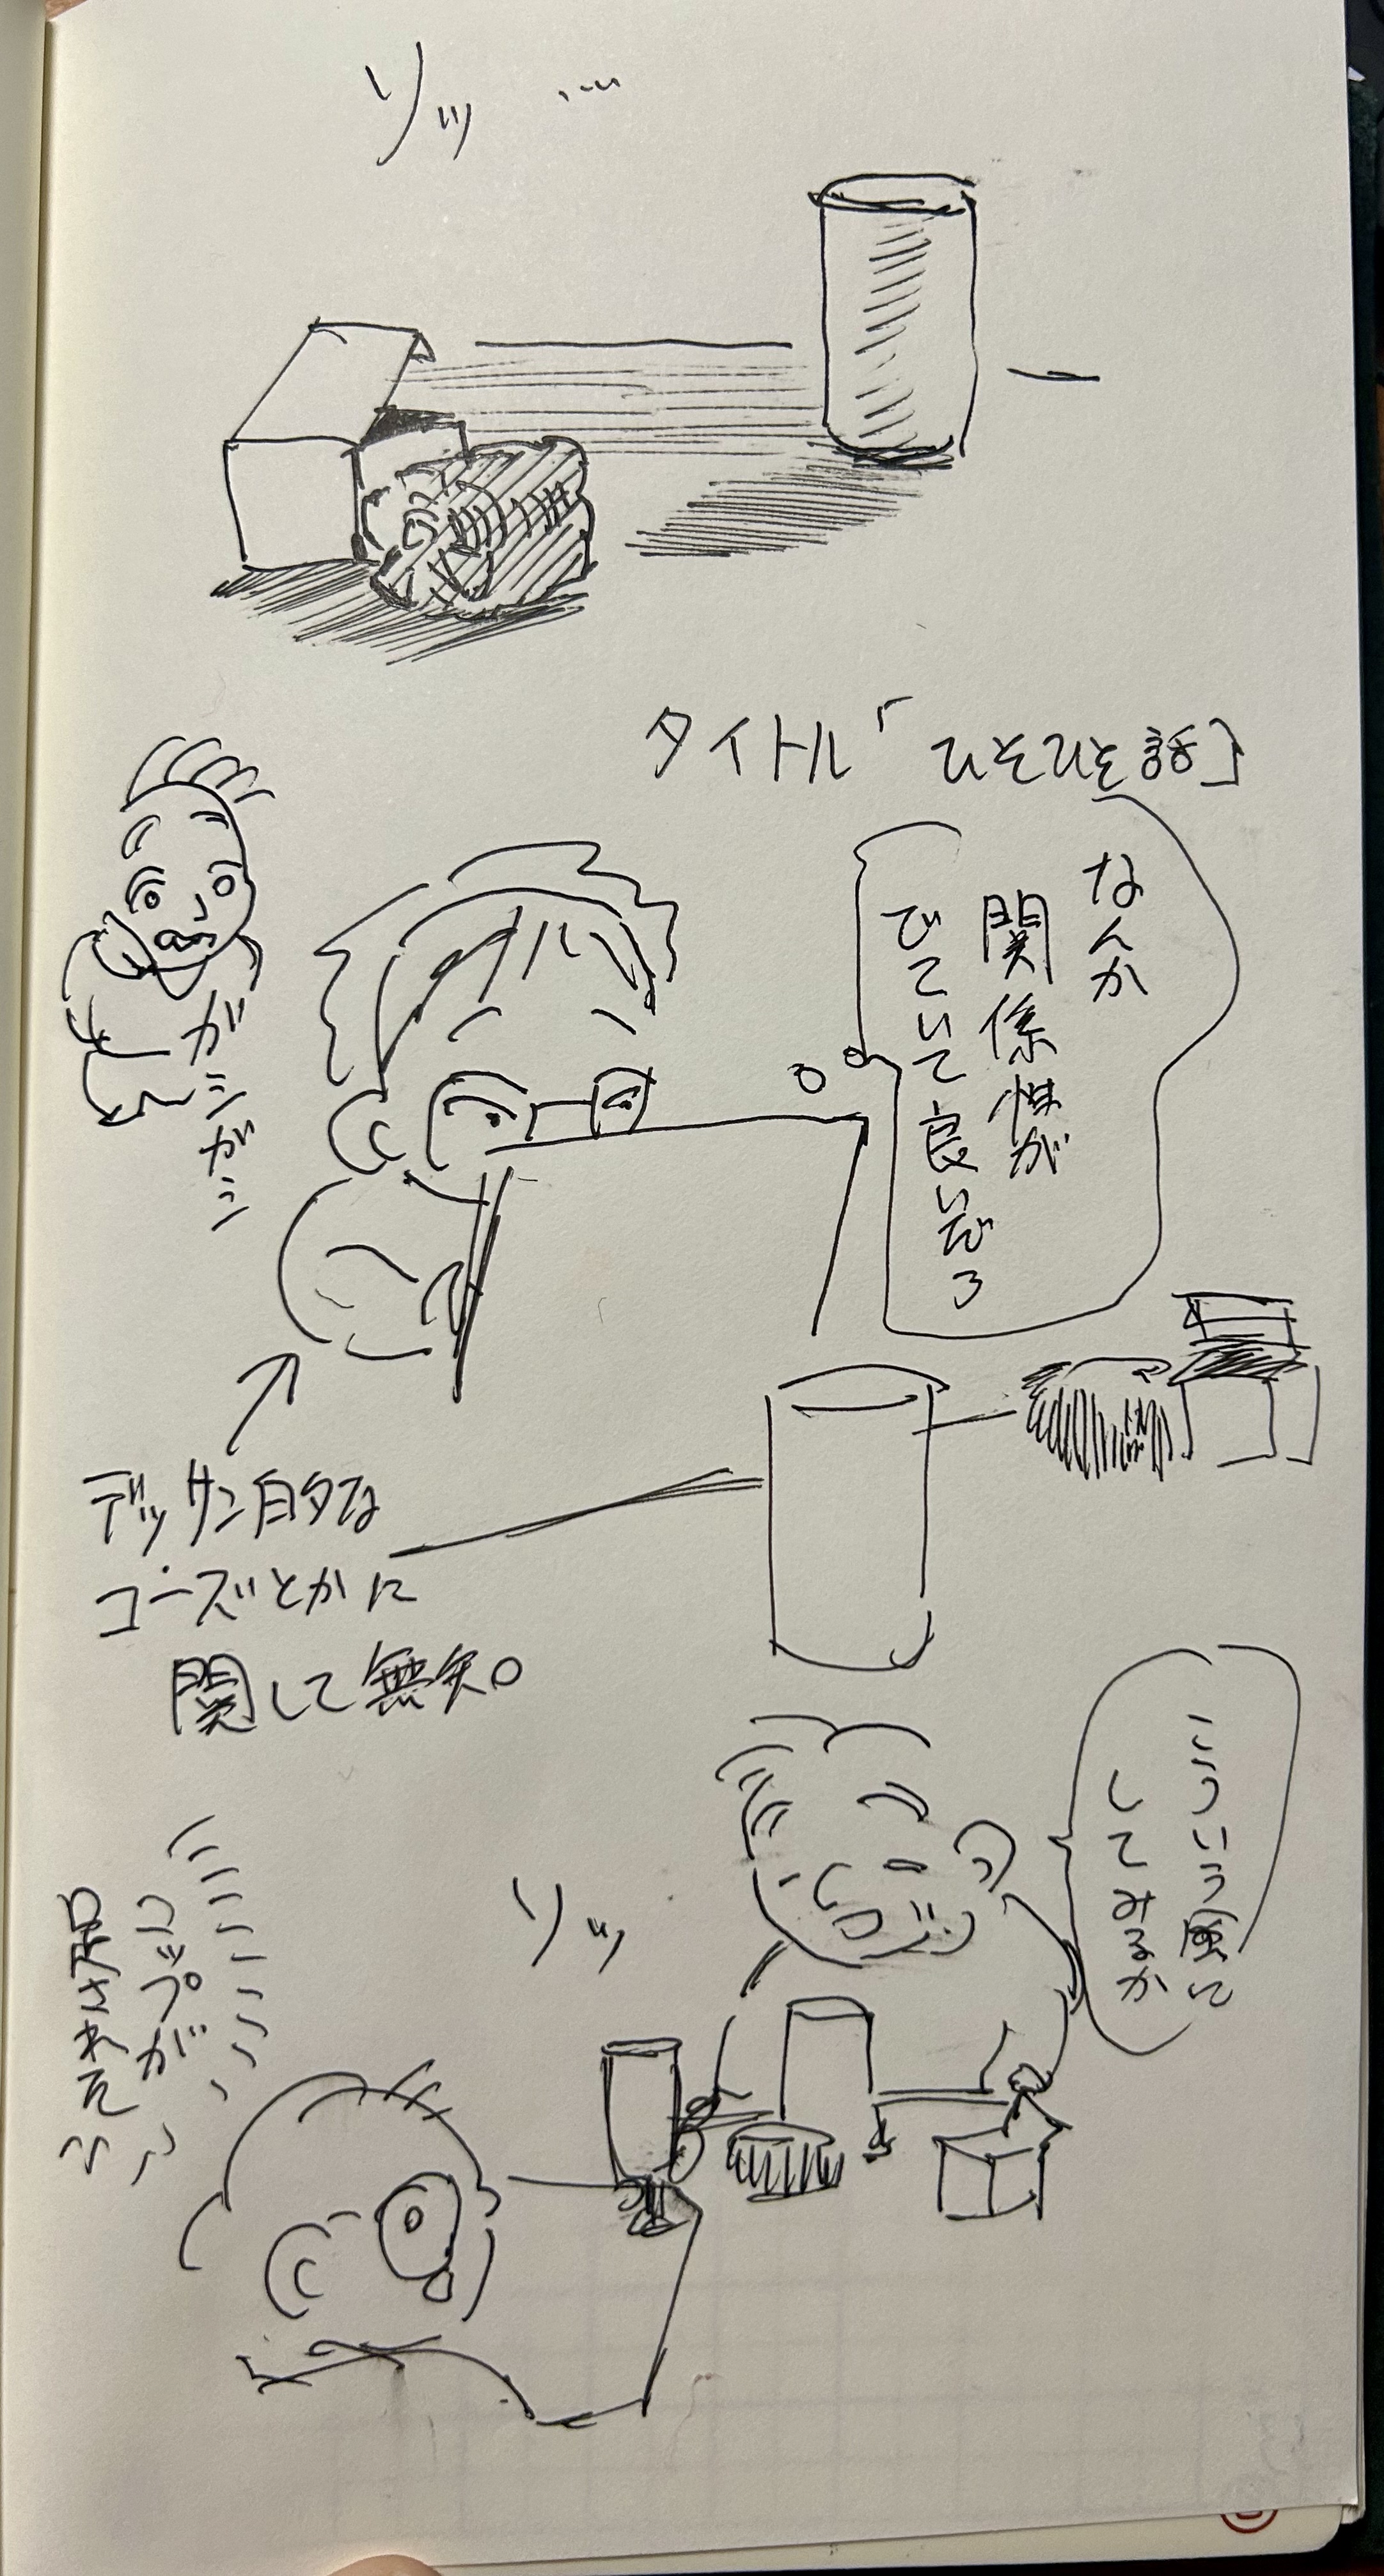 ソッ …
タイトル「ひそひそ話」
なんか
関係性が
でていて良いぞ
ガシガシ
デッサン的な
コーズとかに
関して無知。
こういう風に
してみるか
ソッ
コップが